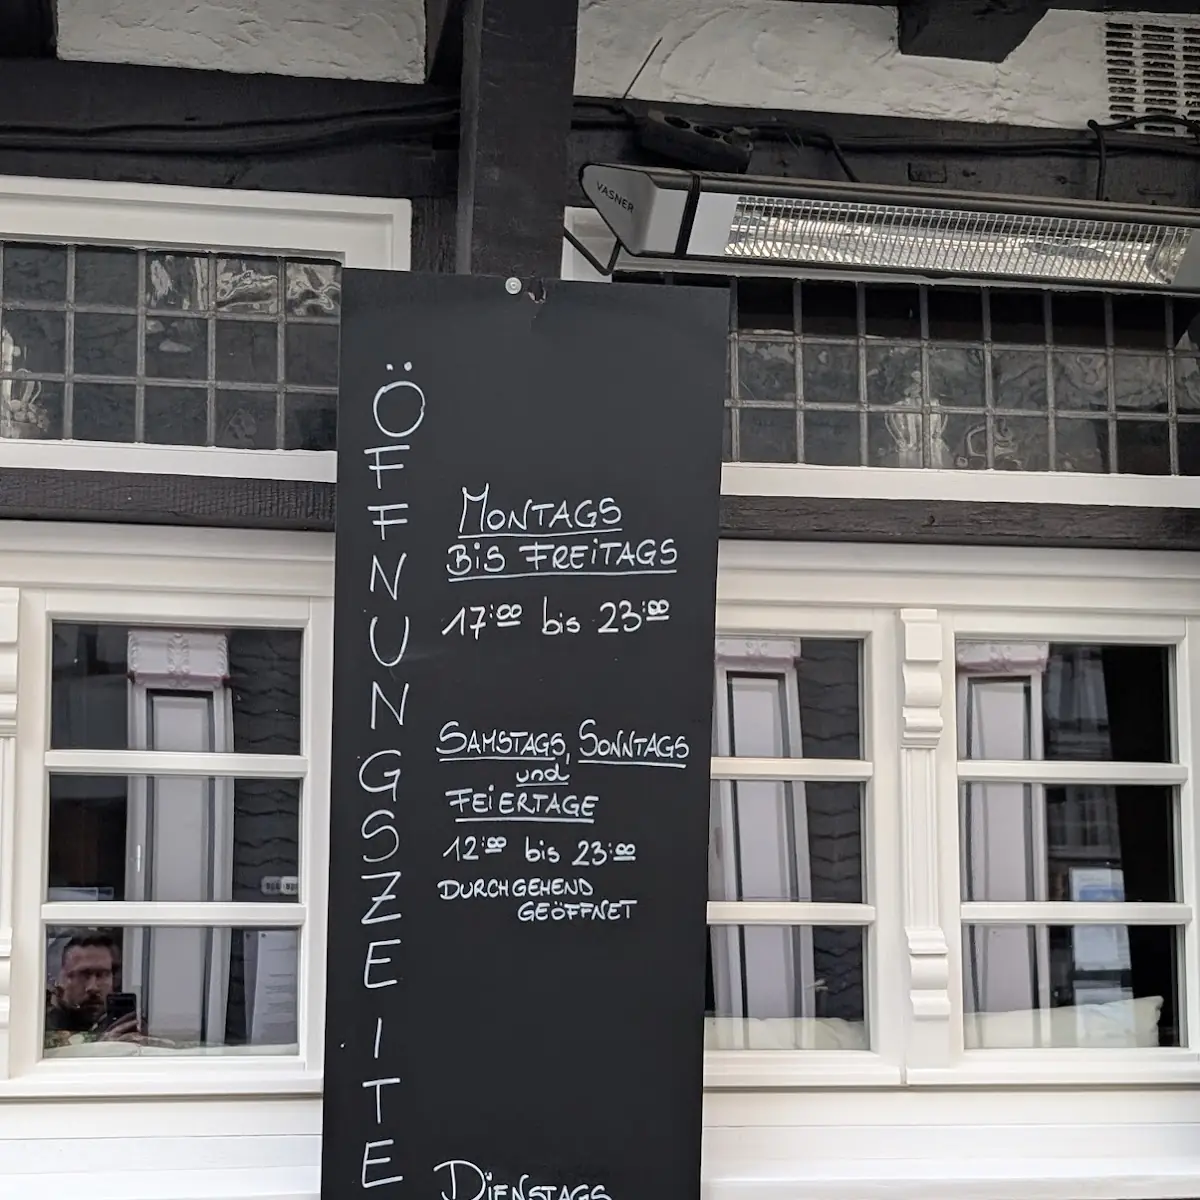 VASNER
ÖFFNUNGSZEITE
MONTAGS
BIS FREITAGS
17:00 bis 23:00
SAMSTAGS, SONNTAGS
und
FEIERTAGE
12:00 bis 23:00
DURCHGEHEND
GEÖFFNET
DIENSTAGS